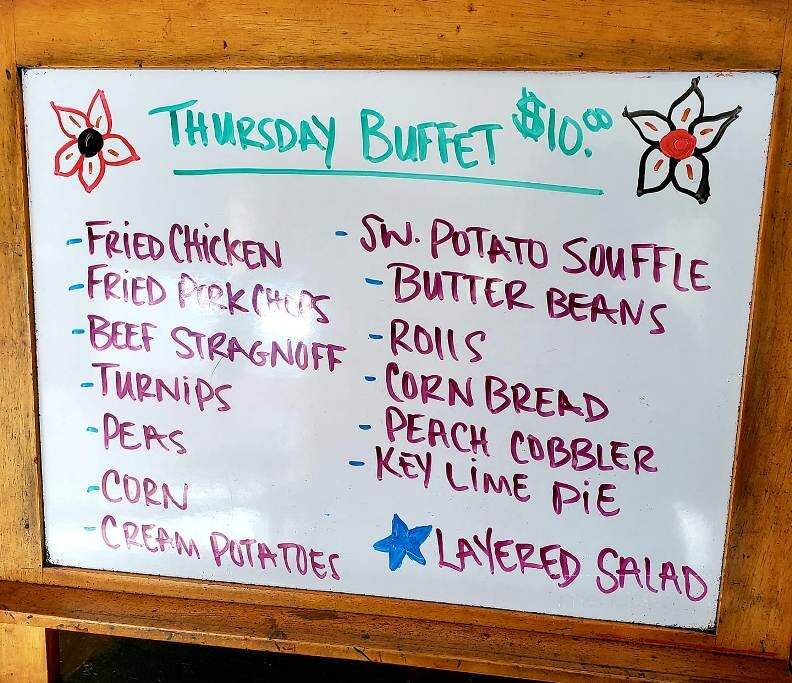 THURSDAY BUFFET $10.00
- FRIED CHICKEN
- FRIED PORK CHOPS
- BEEF STRAGNOFF
- TURNIPS
- PEAS
- CORN
- CREAM POTATOES
- SW. POTATO SOUFFLE
- BUTTER BEANS
- ROLLS
- CORN BREAD
- PEACH COBBLER
- KEY LIME PIE
LAYERED SALAD